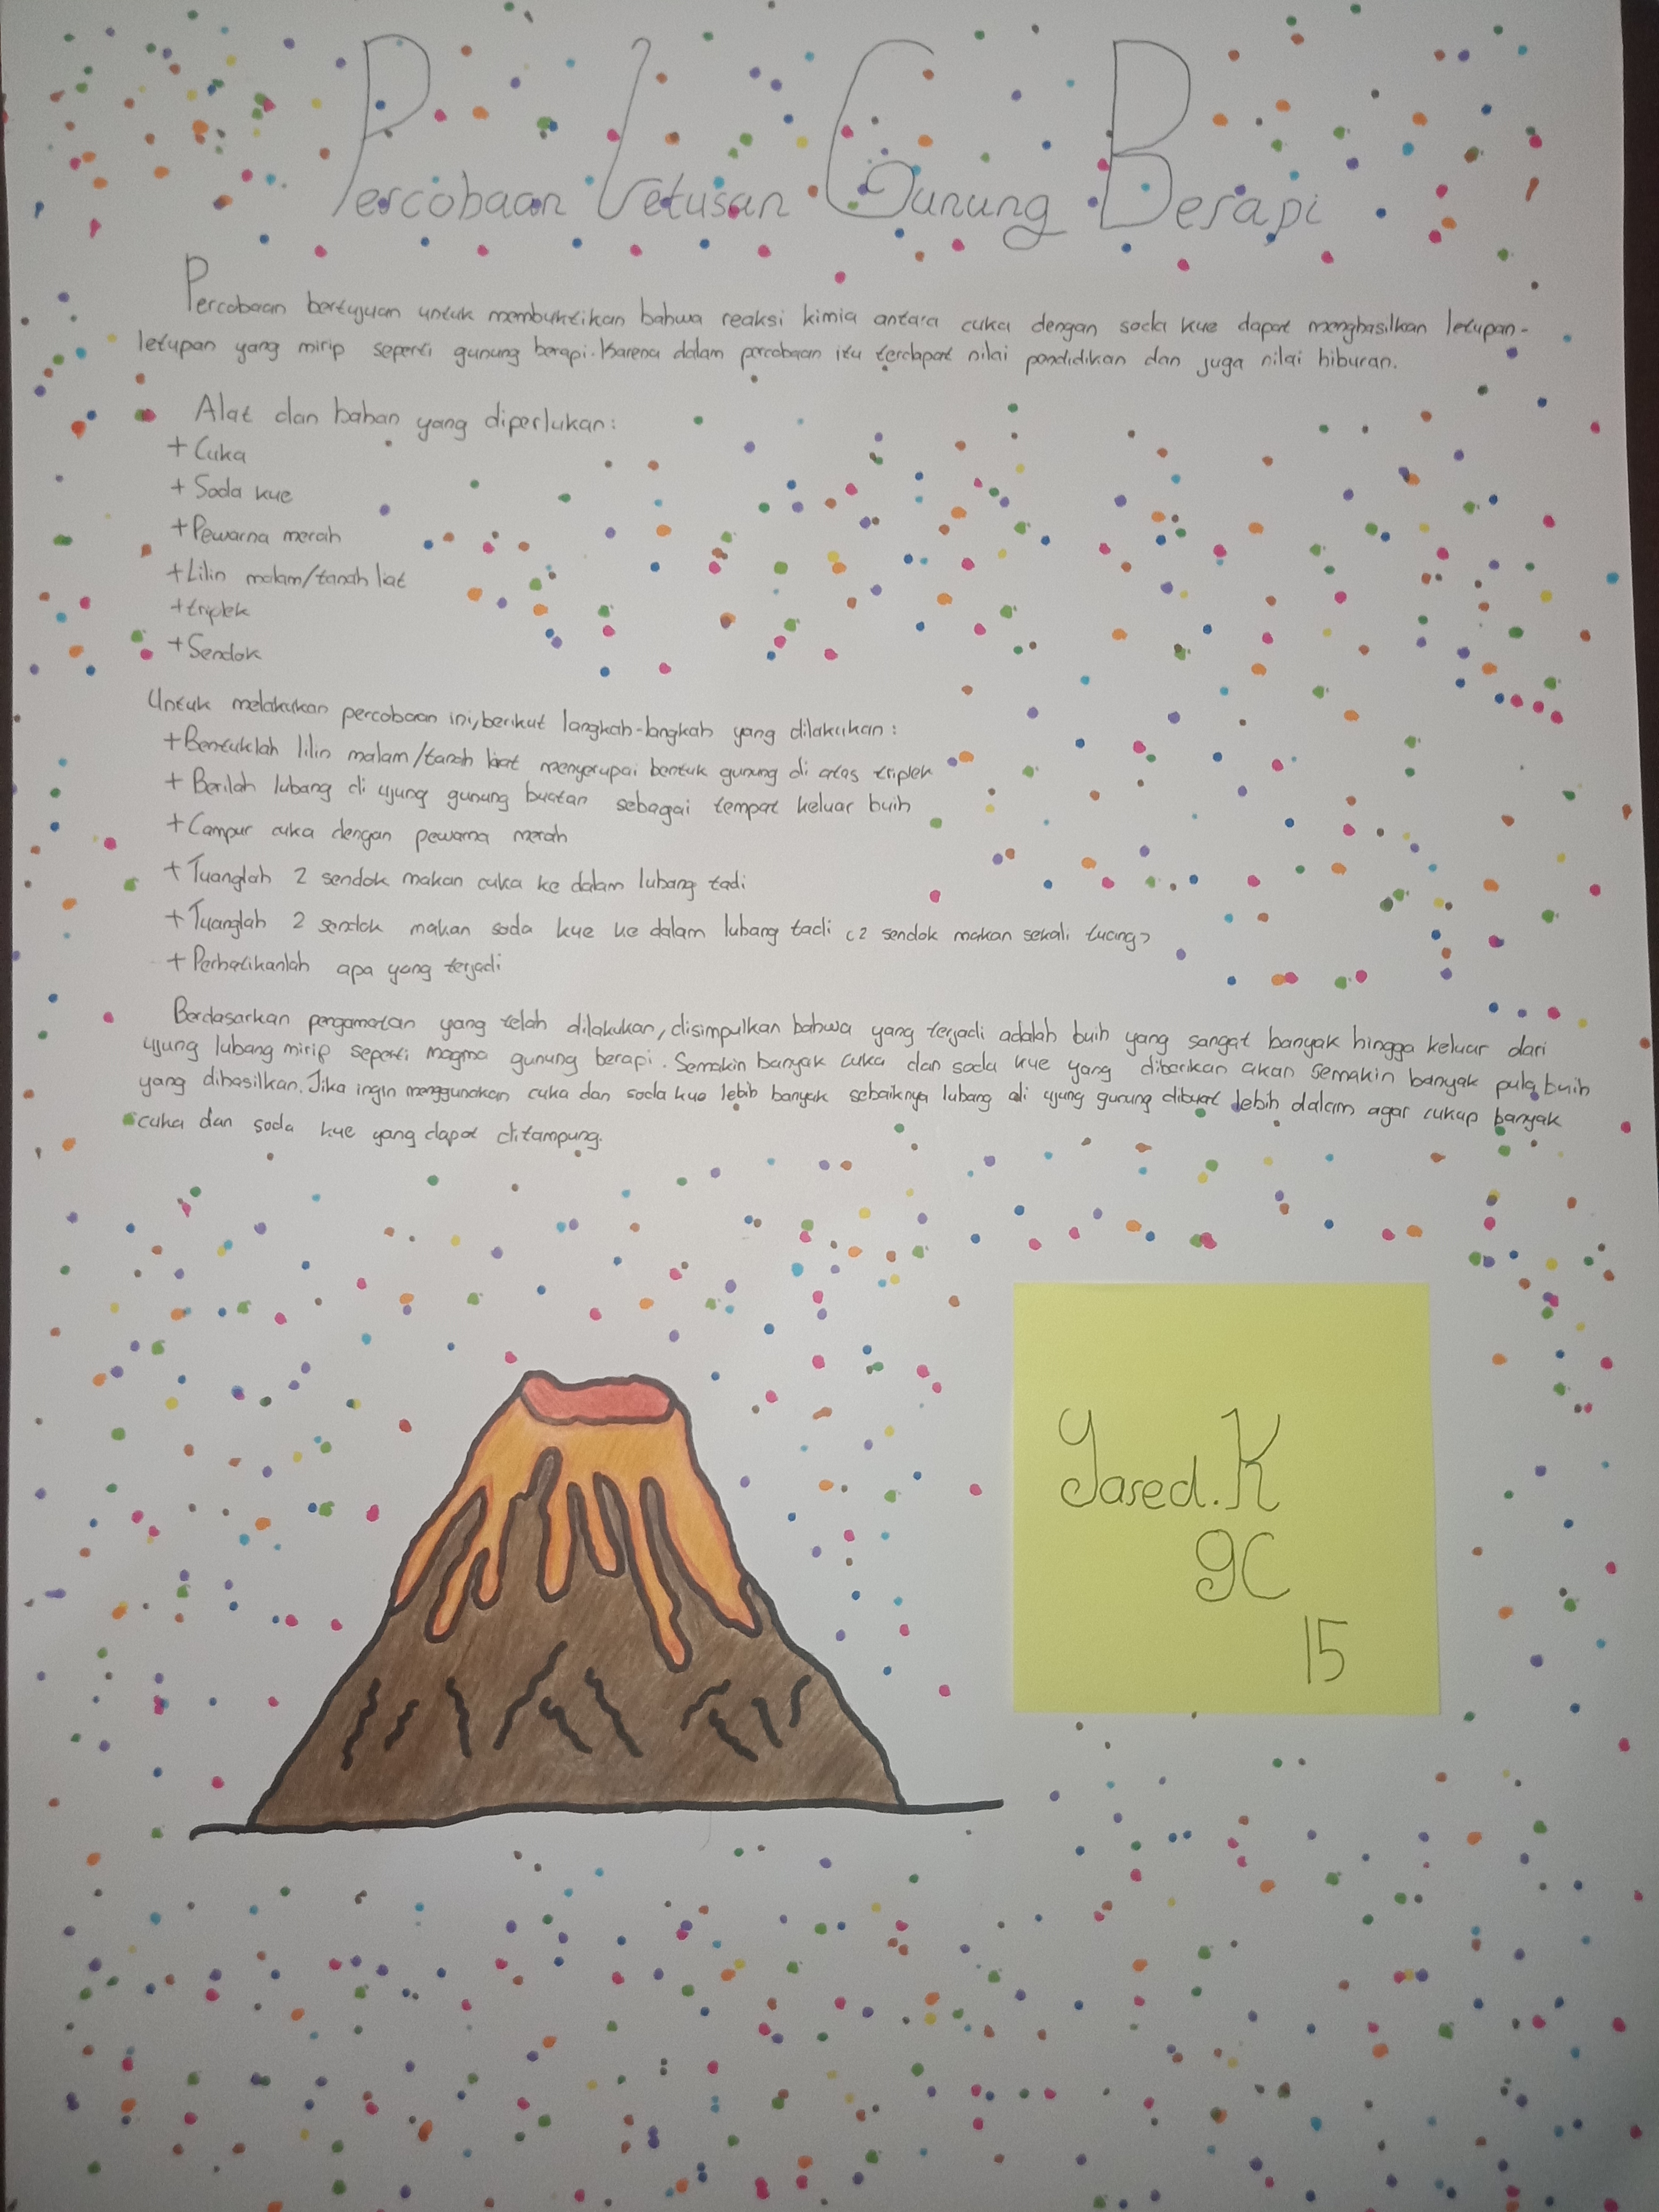 Percobaan Letusan Gunung Berapi
Percobaan bertujuan untuk membuktikan bahwa reaksi kimia antara cuka dengan soda kue dapat menghasilkan letupan-
letupan yang mirip seperti gunung berapi. Karena dalam percobaan itu terdapat nilai pendidikan dan juga nilai hiburan.
Alat dan bahan yang diperlukan:
+ Cuka
+ Soda kue
+ Pewarna merah
+ Lilin malam/tanah liat
+ triplek
+ Sendok
Untuk melakukan percobaan ini, berikut langkah-langkah yang dilakukan:
+ Bentuklah lilin malam/tanah liat menyerupai bentuk gunung di atas triplek
+ Berilah lubang di ujung gunung buatan sebagai tempat keluar buih
+ Campur cuka dengan pewarna merah
+ Tuanglah 2 sendok makan cuka ke dalam lubang tadi
+ Tuanglah 2 sendok makan soda kue ke dalam lubang tadi (2 sendok makan sekali tuang)
+ Perhatikanlah apa yang terjadi
Berdasarkan pengamatan yang telah dilakukan, disimpulkan bahwa yang terjadi adalah buih yang sangat banyak hingga keluar dari
ujung lubang mirip seperti magma gunung berapi. Semakin banyak cuka dan soda kue yang diberikan akan semakin banyak pula buih
yang dihasilkan. Jika ingin menggunakan cuka dan soda kue lebih banyak sebaiknya lubang di ujung gunung dibuat lebih dalam agar cukup banyak
cuka dan soda kue yang dapat ditampung.
Yared.K
9C
15